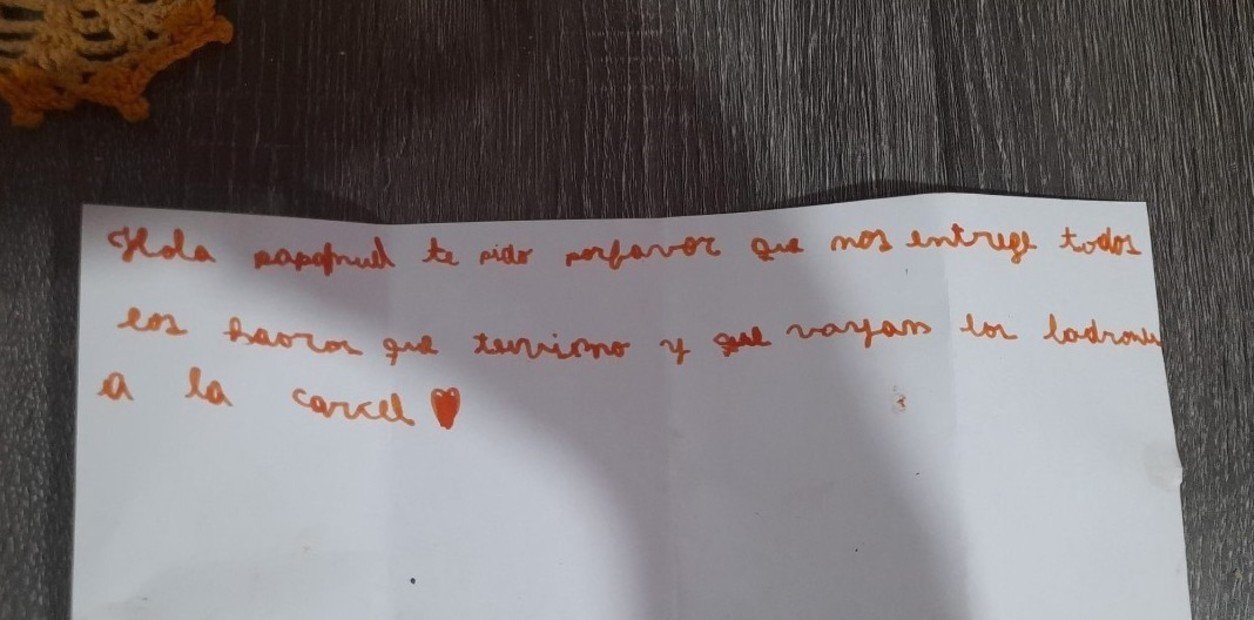 Hola papanuel te pido porfavor que nos entrege todos
los que tenimo y que vayan los ladrones
a la carcel